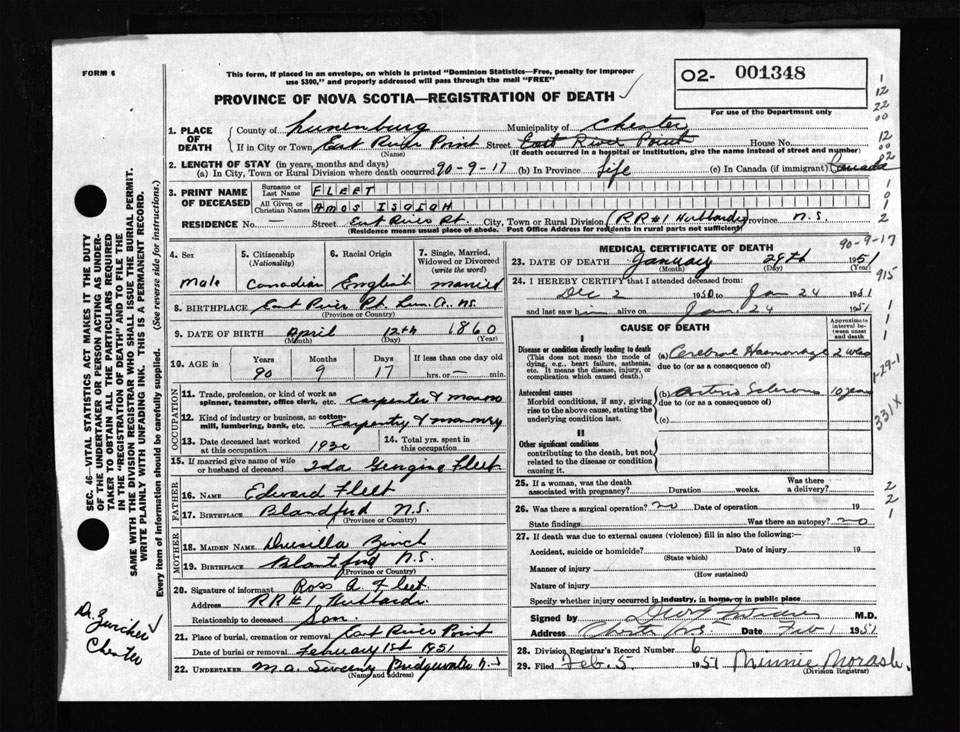 FORM 6
This form, if placed in an envelope, on which is printed "Dominion Statistics—Free, penalty for improper
use $300," and properly addressed will pass through the mail "FREE"
O2- 001348
For use of the Department only
PROVINCE OF NOVA SCOTIA—REGISTRATION OF DEATH
1. PLACE OF DEATH
County of Lunenburg Municipality of Chester
If in City or Town East River Point Street East River Point House No.
(Name) (If death occurred in a hospital or institution, give the name instead of street and number)
2. LENGTH OF STAY (in years, months and days)
(a) In City, Town or Rural Division where death occurred 90-9-17 (b) In Province Life (c) In Canada (if immigrant) Canada
3. PRINT NAME OF DECEASED
Surname or Last Name FLEET
All Given or Christian Names AMOS ISAIAH
RESIDENCE No. Street East River Pt. City, Town or Rural Division (RR#1 Hubbards) Province N.S.
(Residence means usual place of abode. Post Office Address for residents in rural parts not sufficient)
4. Sex Male
5. Citizenship (Nationality) Canadian
6. Racial Origin English
7. Single, Married, Widowed or Divorced (write the word) married
8. BIRTHPLACE East River Pt. Lun. Co. N.S.
(Province or Country)
9. DATE OF BIRTH April 12th 1860
(Month) (Day) (Year)
10. AGE in Years 90 Months 9 Days 17 If less than one day old hrs. or — min.
OCCUPATION
11. Trade, profession, or kind of work as spinner, teamster, office clerk, etc. carpenter & mason
12. Kind of industry or business, as cotton-mill, lumbering, bank, etc. carpentry & masonry
13. Date deceased last worked at this occupation 1930
14. Total yrs. spent in this occupation
15. If married give name of wife or husband of deceased Ida Fleet
FATHER
16. NAME Edward Fleet
17. BIRTHPLACE Blandford N.S.
(Province or Country)
MOTHER
18. MAIDEN NAME Drusilla Zinck
19. BIRTHPLACE Blandford N.S.
(Province or Country)
20. Signature of informant Ross A. Fleet
Address RR#1 Hubbards
Relationship to deceased Son
21. Place of burial, cremation or removal East River Point
Date of burial or removal February 1st 1951
22. UNDERTAKER M.A. Sweeny Bridgewater N.S
(Name and address)
MEDICAL CERTIFICATE OF DEATH
90-9-17
23. DATE OF DEATH January 29th 1951
(Month) (Day) (Year)
24. I HEREBY CERTIFY that I attended deceased from:
Dec 2 1950 to Jan 24 1951
and last saw him alive on Jan. 24 1951
CAUSE OF DEATH
Approximate interval between onset and death
I
Disease or condition directly leading to death
(This does not mean the mode of dying, e.g., heart failure, asthenia, etc. It means the disease, injury, or complication which caused death.)
(a) Cerebral Haemorrhage 2 weeks
due to (or as a consequence of)
Antecedent causes
Morbid conditions, if any, giving rise to the above cause, stating the underlying condition last.
(b) Arterio Sclerosis 10 years
due to (or as a consequence of)
(c)
II
Other significant conditions
contributing to the death, but not related to the disease or condition causing it.
25. If a woman, was the death associated with pregnancy? Duration weeks. Was there a delivery?
26. Was there a surgical operation? no Date of operation 19
State findings Was there an autopsy? no
27. If death was due to external causes (violence) fill in also the following:
Accident, suicide or homicide? Date of injury 19
(State which)
Manner of injury
(How sustained)
Nature of injury
Specify whether injury occurred in industry, in home, or in public place
Signed by M.D.
Address Chester N.S. Date Feb 1 1951
28. Division Registrar's Record Number 6
29. Filed Feb. 5 1951 Minnie Morash
(Division Registrar)
SEC. 46—VITAL STATISTICS ACT MAKES IT THE DUTY
OF THE UNDERTAKER OR PERSON ACTING AS UNDER-
TAKER TO OBTAIN ALL THE PARTICULARS REQUIRED
IN THE "REGISTRATION OF DEATH" AND TO FILE THE
SAME WITH THE DIVISION REGISTRAR WHO SHALL ISSUE THE BURIAL PERMIT.
WRITE PLAINLY WITH UNFADING INK. THIS IS A PERMANENT RECORD.
Every item of information should be carefully supplied. (See reverse side for instructions.)
Dr. Zwicker
Chester
1
12
22
00
12
00
02
2
9
1
2
915
1
1
1
1-29-1
331X
2
2
1